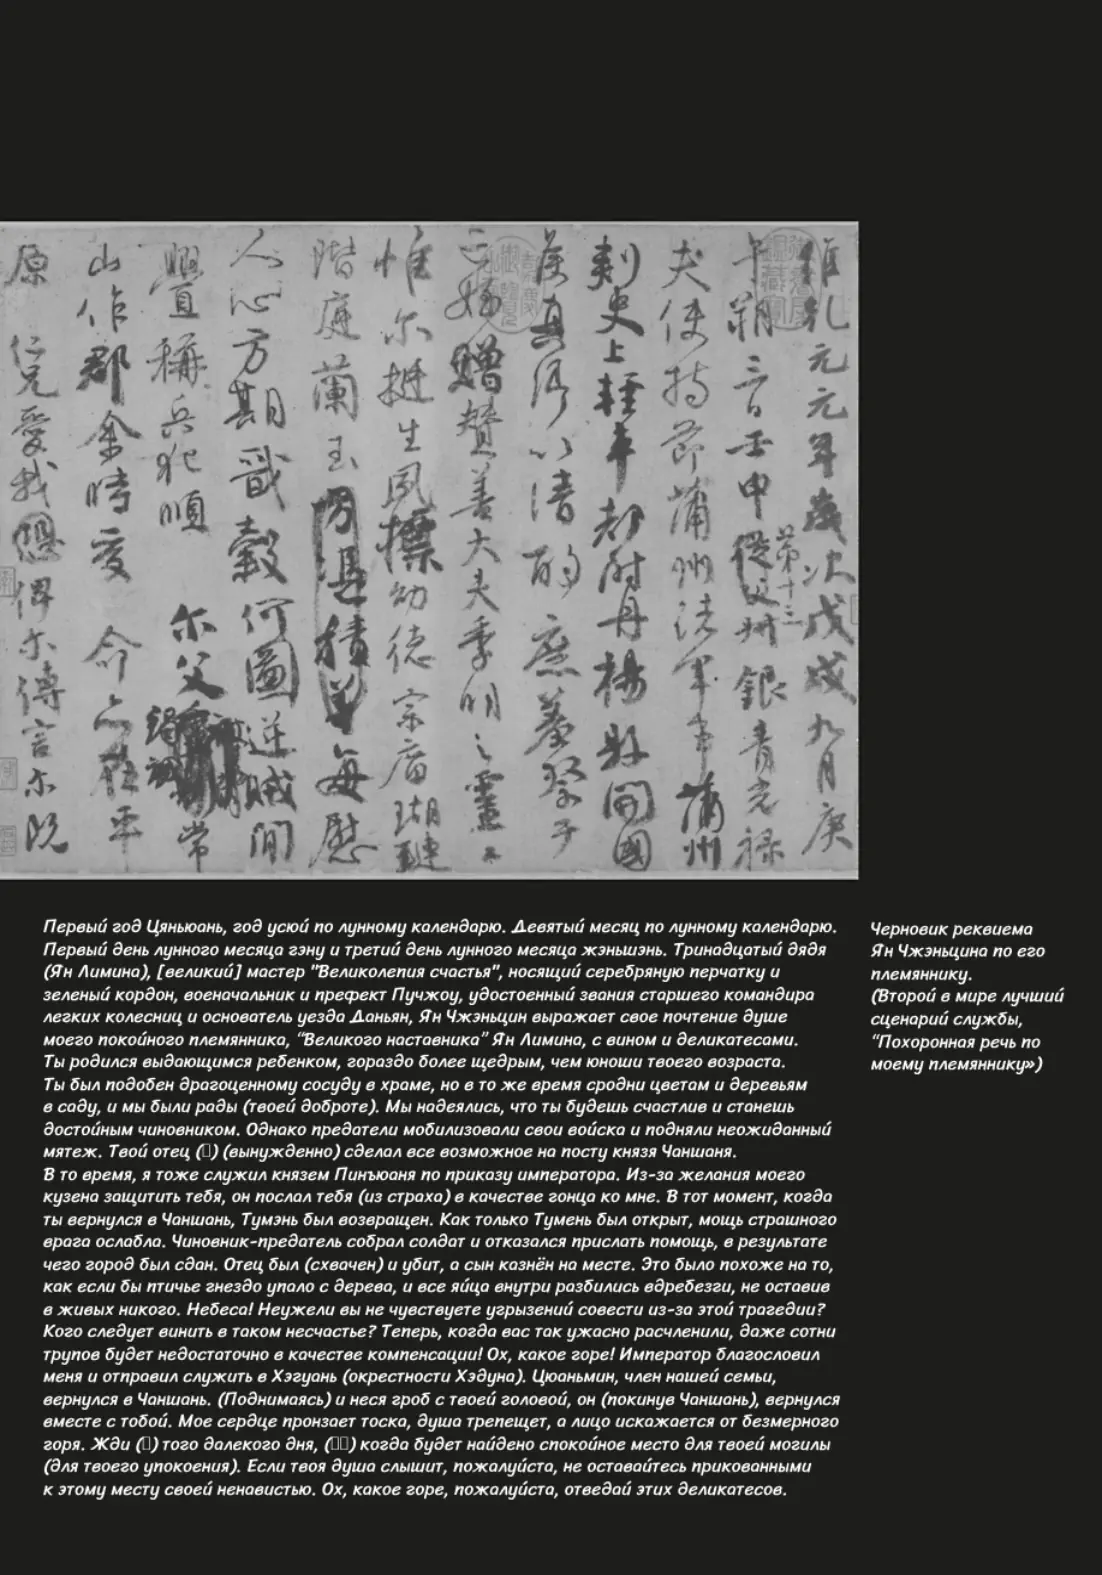 維乾元元年歲次戊戌九月庚
午朔三日壬申第十三從父銀青光祿
夫使持節蒲州諸軍事蒲州
刺史上輕車都尉丹楊縣開國
侯真卿以清酌庶羞祭于
亡姪贈贊善大夫季明之靈曰
惟尔挺生夙標幼德宗廟瑚璉
階庭蘭玉每慰
人心方期戩穀何圖逆賊間
釁稱兵犯順尔父常
山作郡余時受命亦在平
原仁兄愛我俾尔傳言尔既
Первый год Цяньюань, год усюй по лунному календарю. Девятый месяц по лунному календарю.
Первый день лунного месяца гэну и третий день лунного месяца жэньшэнь. Тринадцатый дядя
(Ян Лимина), [великий] мастер "Великолепия счастья", носящий серебряную перчатку и
зеленый кордон, военачальник и префект Пучжоу, удостоенный звания старшего командира
легких колесниц и основатель уезда Даньян, Ян Чжэньцин выражает свое почтение душе
моего покойного племянника, “Великого наставника” Ян Лимина, с вином и деликатесами.
Ты родился выдающимся ребенком, гораздо более щедрым, чем юноши твоего возраста.
Ты был подобен драгоценному сосуду в храме, но в то же время сродни цветам и деревьям
в саду, и мы были рады (твоей доброте). Мы надеялись, что ты будешь счастлив и станешь
достойным чиновником. Однако предатели мобилизовали свои войска и подняли неожиданный
мятеж. Твой отец (▯) (вынужденно) сделал все возможное на посту князя Чаншаня.
В то время, я тоже служил князем Пинъюаня по приказу императора. Из-за желания моего
кузена защитить тебя, он послал тебя (из страха) в качестве гонца ко мне. В тот момент, когда
ты вернулся в Чаншань, Тумэнь был возвращен. Как только Тумень был открыт, мощь страшного
врага ослабла. Чиновник-предатель собрал солдат и отказался прислать помощь, в результате
чего город был сдан. Отец был (схвачен) и убит, а сын казнён на месте. Это было похоже на то,
как если бы птичье гнездо упало с дерева, и все яйца внутри разбились вдребезги, не оставив
в живых никого. Небеса! Неужели вы не чувствуете угрызений совести из-за этой трагедии?
Кого следует винить в таком несчастье? Теперь, когда вас так ужасно расчленили, даже сотни
трупов будет недостаточно в качестве компенсации! Ох, какое горе! Император благословил
меня и отправил служить в Хэгуань (окрестности Хэдуна). Цюаньмин, член нашей семьи,
вернулся в Чаншань. (Поднимаясь) и неся гроб с твоей головой, он (покинув Чаншань), вернулся
вместе с тобой. Мое сердце пронзает тоска, душа трепещет, а лицо искажается от безмерного
горя. Жди (▯) того далекого дня, (▯▯) когда будет найдено спокойное место для твоей могилы
(для твоего упокоения). Если твоя душа слышит, пожалуйста, не оставайтесь прикованными
к этому месту своей ненавистью. Ох, какое горе, пожалуйста, отведай этих деликатесов.
Черновик реквиема
Ян Чжэньцина по его
племяннику.
(Второй в мире лучший
сценарий службы,
“Похоронная речь по
моему племяннику»)